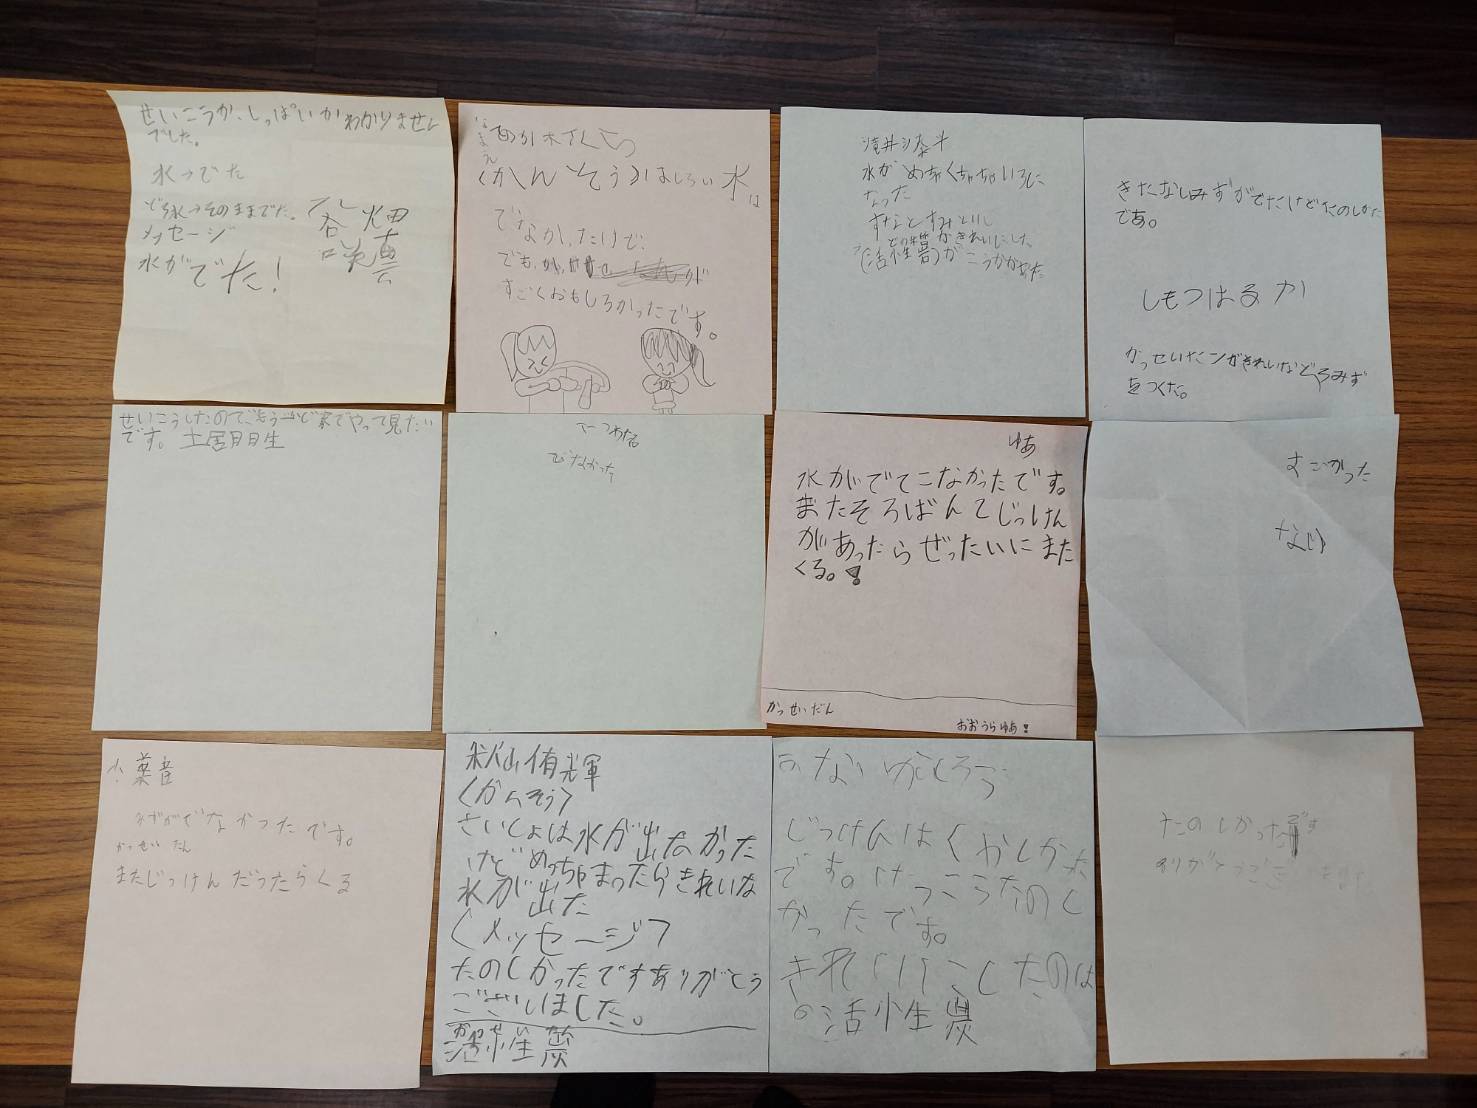 せいこうか、しっぱいかわかりません
でした。
水→でた
どろ水→そのままでた。
メッセージ
水がでた!
谷畑
咲真
なまえ
あかぎさくら
〈かんそう〉はしろい水は
でなかったけど、
でも
すごくおもしろかったです。
滝井
水がめちゃくちゃちゃいろに
なった
すなとすみといし
どの層がきれいにした
(活性層)がこうかがあった
きたなしみずがでたけどたのしかた
であ。
しもつはるか
かっせいたンがきれいなどろみず
をつくた。
せいこうしたので、もう一ど家でやって見たい
です。土居
でなかった
ゆあ
水がでてこなかったです。
またそろばんてじっけん
があったらぜったいにまた
くる。!
かっせいだん
おおうらゆあ!
すごかった
なし
葉音
みずがでなかったです。
かっせいたん
またじっけんだったらくる
秋山侑輝
〈かんそう〉
さいしょは水が出なかった
けどめっちゃまったらきれいな
水が出た
〈メッセージ〉
たのしかったですありがとう
ございました。
かっせいたん
活性炭
じっけんはくわしかた
です。けっこうたのし
かったです。
きれいにしたのは
の活性炭
たのしかったです
ありがとうござ